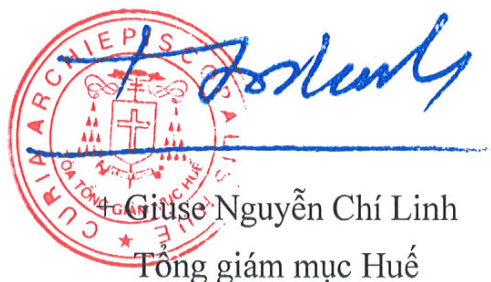 CURIA ARCHIEPISCOPALIS HUE
TÒA TỔNG GIÁM MỤC HUẾ
+ Giuse Nguyễn Chí Linh
Tổng giám mục Huế